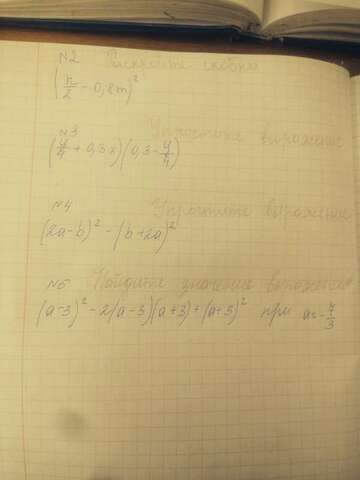 №2 Раскройте скобки
(n/2 - 0,8m)²
№3 Упростите выражение
(y/4 + 0,3x)(0,3 - y/4)
№4 Упростите выражение
(2a-b)² - (b+2a)²
№5 Найдите значение выражения
(a-3)² - 2(a-3)(a+3) + (a+3)² при a = -7/3